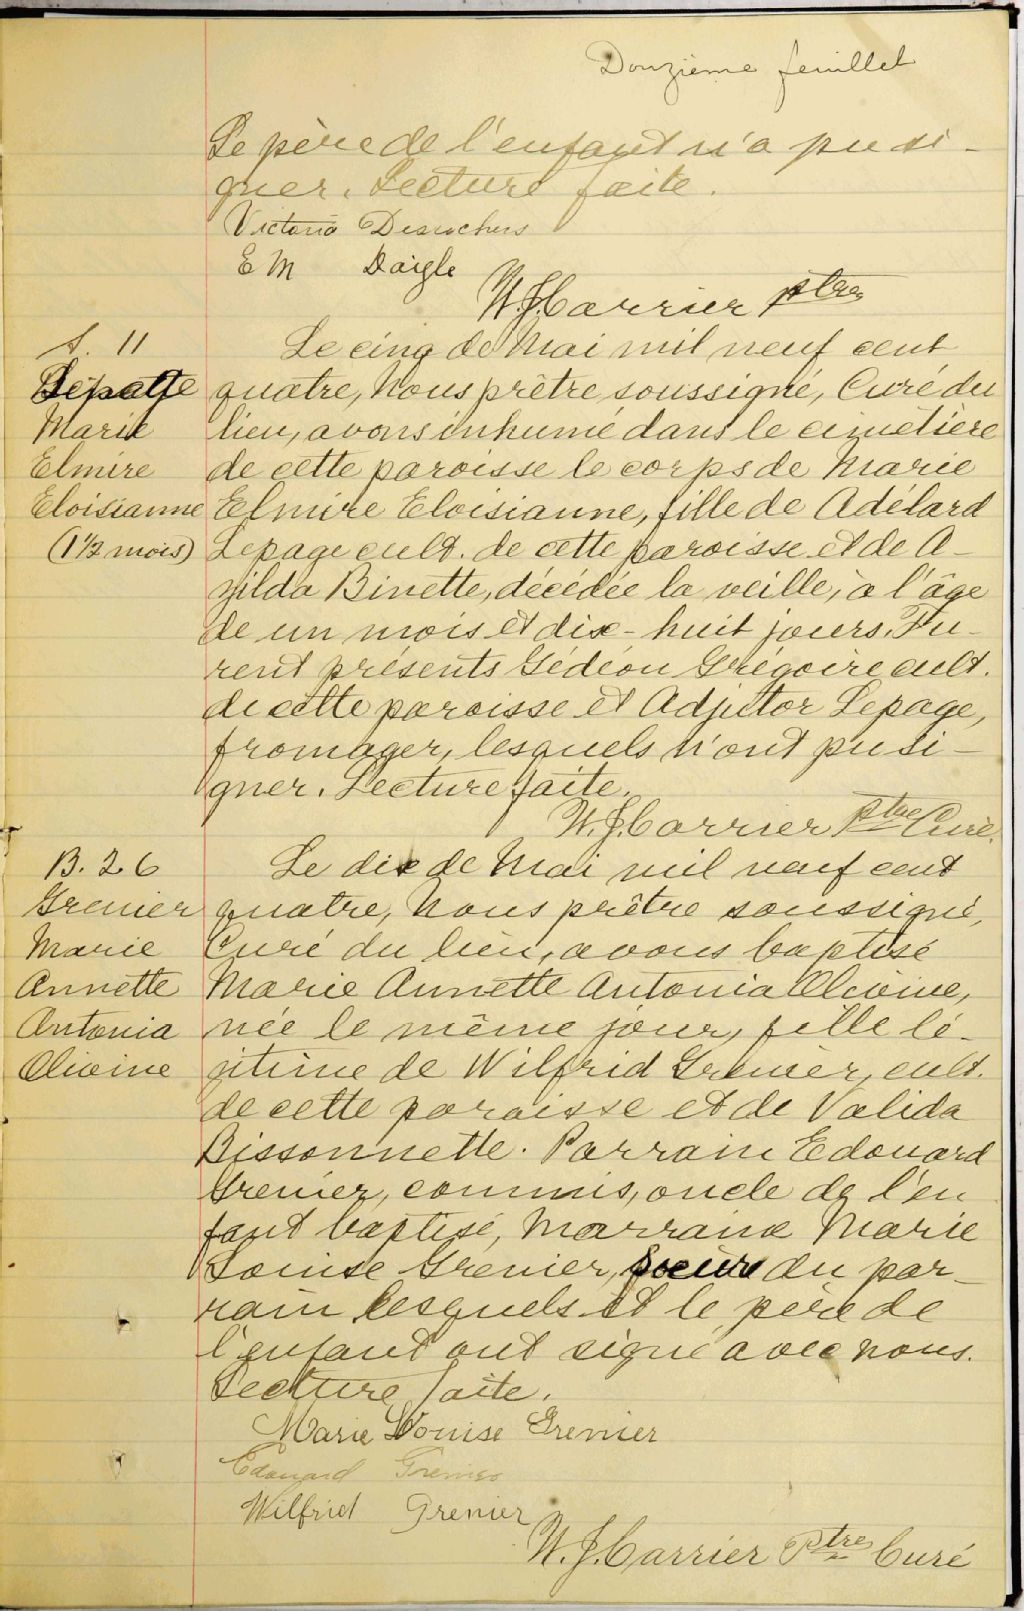 Douzième feuillet
Le père de l'enfant n'a pu si-
gner. Lecture faite.
Victoria Desrochers
E M Daigle
W. J. Carrier ptre
S. 11
Lepage
Marie
Elmire
Eloisianne
(1 1/2 mois)
Le cinq de Mai mil neuf cent
quatre, Nous prêtre soussigné, Curé du
lieu, avons inhumé dans le cimetière
de cette paroisse le corps de Marie
Elmire Eloisianne, fille de Adélard
Lepage cult. de cette paroisse et de A-
zilda Binette, décédée la veille, à l'âge
de un mois et dix-huit jours. Fu-
rent présents Gédéon Grégoire cult.
de cette paroisse et Adjutor Lepage,
fromager, lesquels n'ont pu si-
gner. Lecture faite.
W. J. Carrier Ptre Curé.
B. 26
Grenier
Marie
Annette
Antonia
Olivine
Le dix de Mai mil neuf cent
quatre, Nous prêtre soussigné,
Curé du lieu, avons baptisé
Marie Annette Antonia Olivine,
née le même jour, fille lé-
gitime de Wilfrid Grenier, cult.
de cette paroisse et de Valida
Bissonnette. Parrain Edouard
Grenier, commis, oncle de l'en
fant baptisé, Marraine Marie
Louise Grenier, soeur du par-
rain lesquels et le père de
l'enfant ont signé avec nous.
Lecture faite.
Marie Louise Grenier
Edouard Grenier
Wilfrid Grenier
W. J. Carrier Ptre Curé